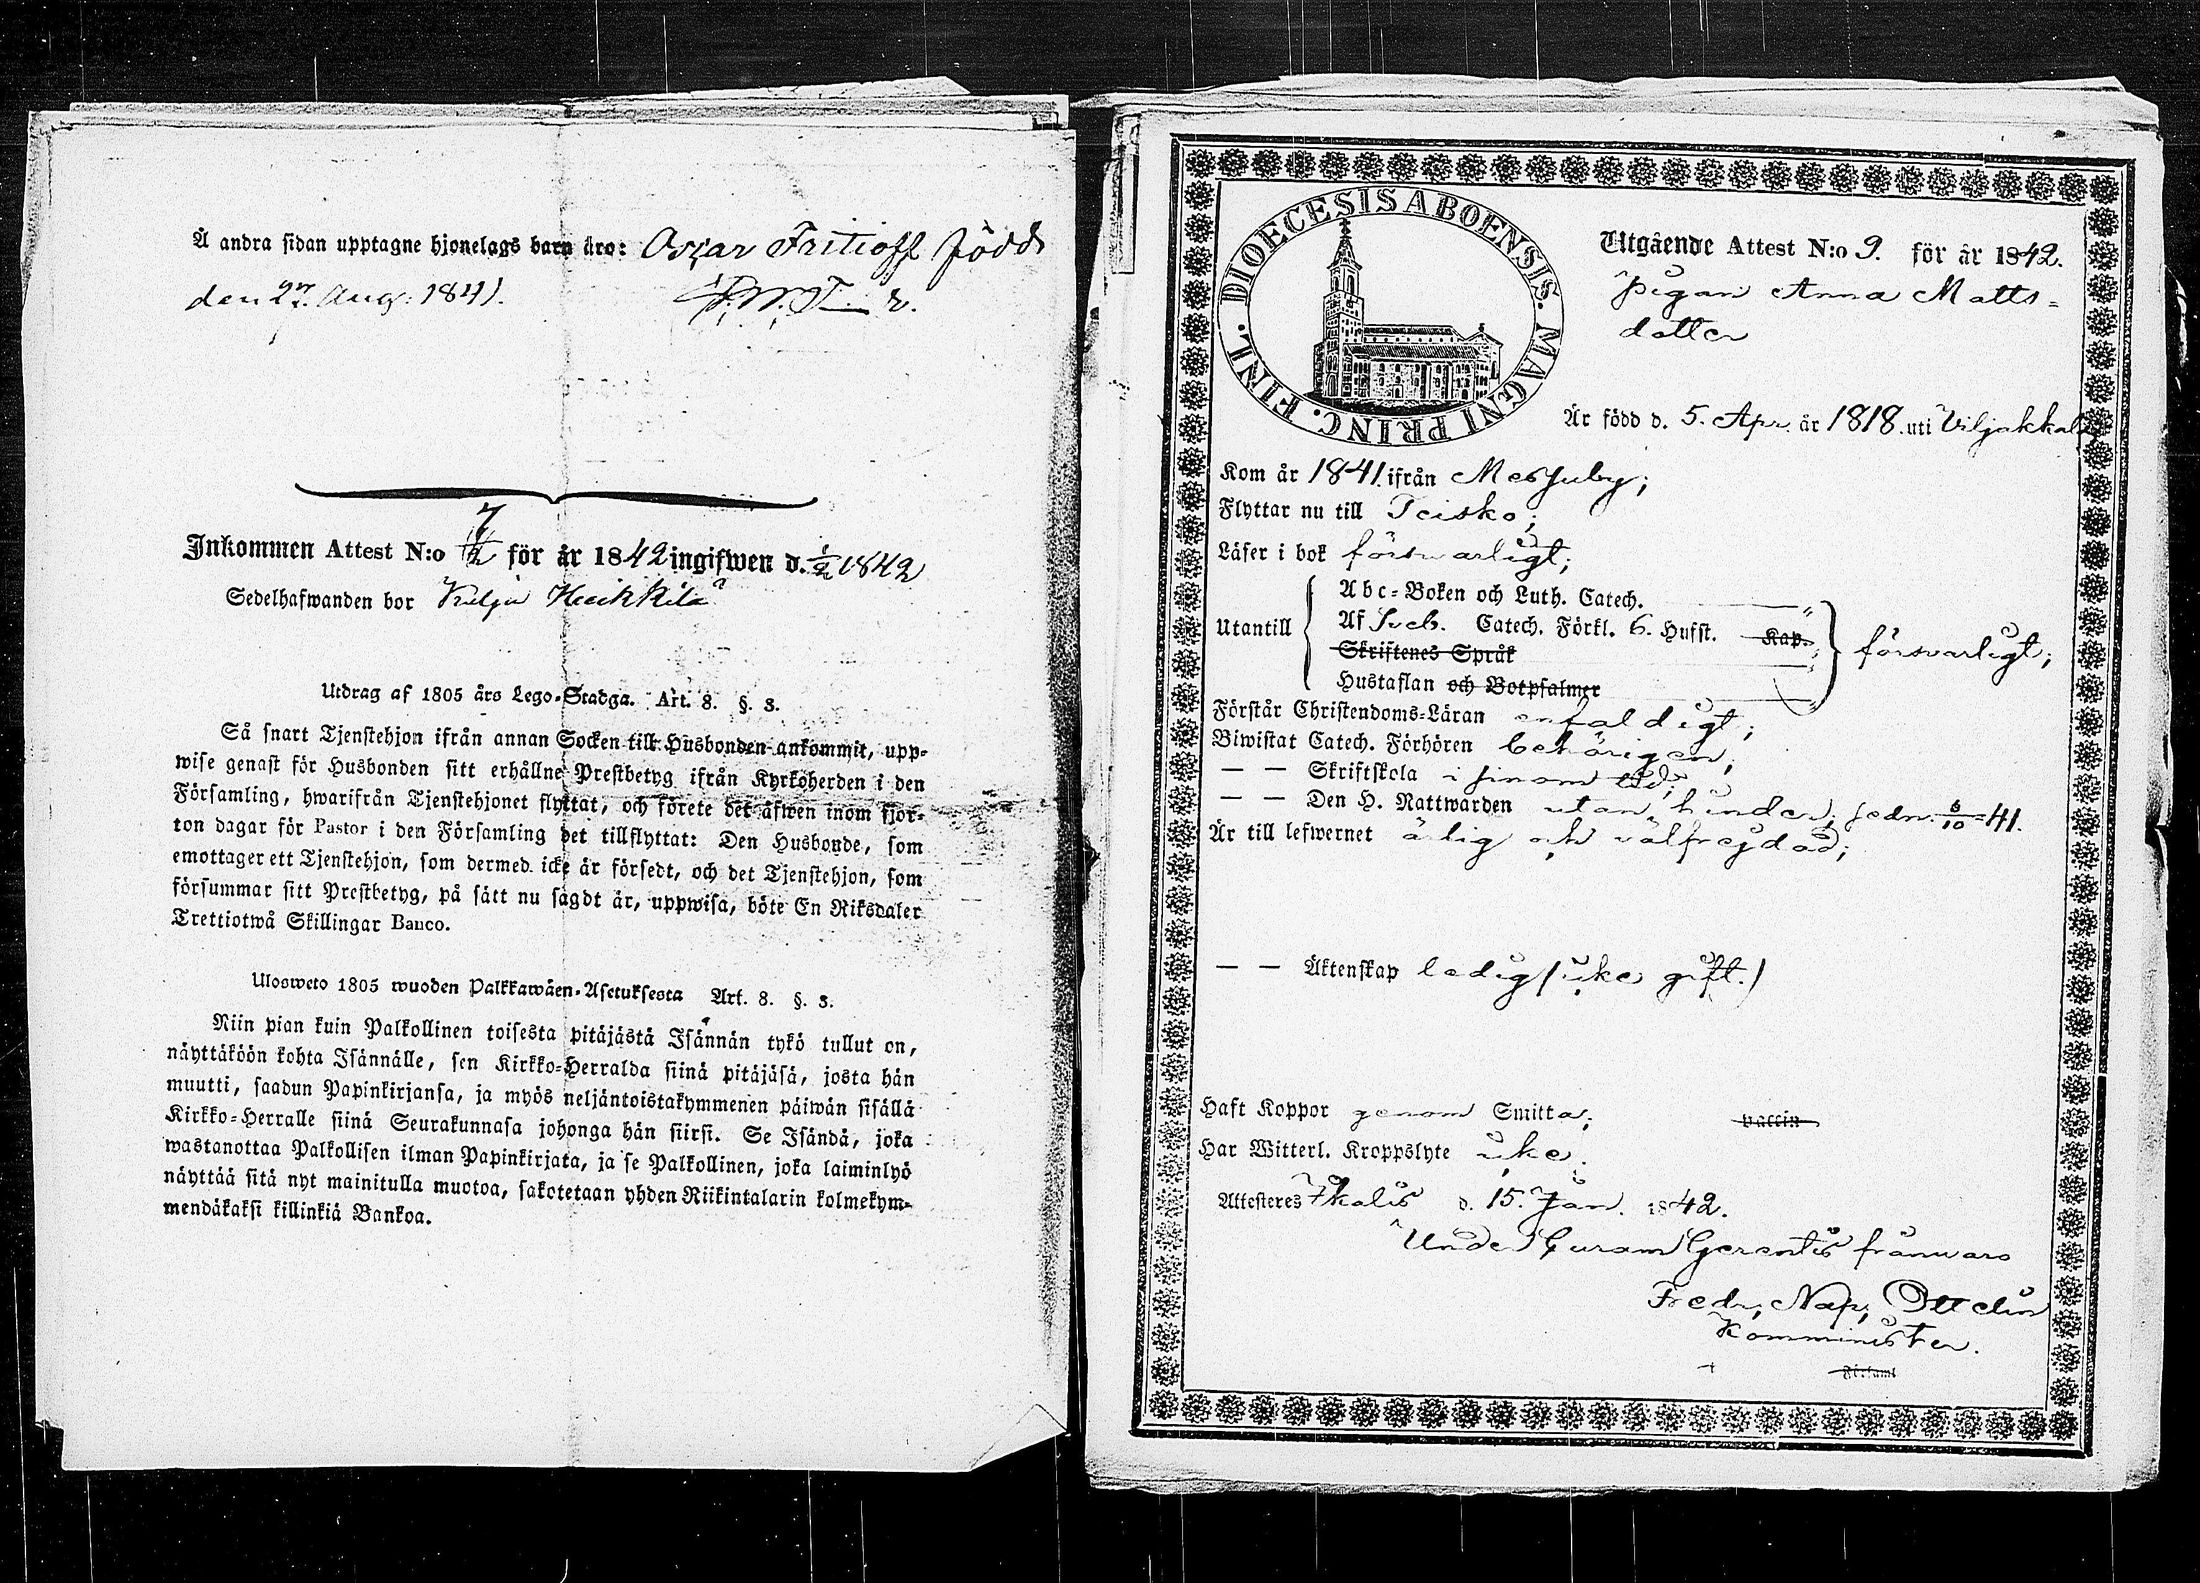 Å andra sidan upptagne hjonelags barn äro: Oscar Fritioff född
den 27. Aug. 1841.
Inkommen Attest N:o 7/2 för år 1842 ingifwen d. 1/2 1842
Sedelhafwanden bor Kulju Heikkilä
Utdrag af 1805 års Lego-Stadga. Art. 8. §. 3.
Så snart Tjenstehjon ifrån annan Socken till Husbonden ankommit, upp-
wise genast för Husbonden sitt erhållne Prestbetyg ifrån Kyrkoherden i den
Församling, hwarifrån Tjenstehjonet flyttat, och förete det äfwen inom fjor-
ton dagar för Pastor i den Församling det tillflyttat: Den Husbonde, som
emottager ett Tjenstehjon, som dermed icke är försedt, och det Tjenstehjon, som
försummar sitt Prestbetyg, på sätt nu sagdt är, uppwisa, böte En Riksdaler
Trettiotwå Skillingar Banco.
Ulosweto 1805 wuoden Palkkawäen-Asetuksesta Art. 8. §. 3.
Niin pian kuin Palkollinen toisesta pitäjästä Isännän tykö tullut on,
näyttäköön kohta Isännälle, sen Kirkko-Herralda siinä pitäjäsä, josta hän
muutti, saadun Papinkirjansa, ja myös neljäntoistakymmenen päiwän sisällä
Kirkko-Herralle siinä Seurakunnasa johonga hän siirsi. Se Isändä, joka
wastanottaa Palkollisen ilman Papinkirjata, ja se Palkollinen, joka laiminlyö
näyttää sitä nyt mainitulla muotoa, sakotetaan yhden Riikintalarin kolmekym-
mendäkaksi killinkiä Bankoa.
DIOECESIS ABOENSIS. MAGNI PRINC. FINL.
Utgående Attest N:o 9. för år 1842.
Pigan Anna Matts-
dotter
Är född d. 5. Apr. år 1818. uti Viljakkala
Kom år 1841. ifrån Mesuby;
Flyttar nu till Teisko;
Läser i bok försvarligt;
Utantill
Abc-Boken och Luth. Catech. "
Af Sveb. Catech. Förkl. 6. Hufst. Kap.
Skriftenes Språk
Hustaflan och Botpsalmer
försvarligt;
Förstår Christendoms-Läran enfaldigt;
Biwistat Catech. Förhören behörigen;
— — Skriftskola i sinom tid;
— — Den H. Nattwarden utan hinder, sedn. 6/10 41.
Är till lefwernet ärlig och välfrejdad;
— — Äktenskap ledig (icke gift.)
Haft Koppor genom Smitta; vaccin
Har Witterl. Kroppslyte icke.
Attesteres Ikalis d. 15. Jan. 1842.
Under Curam Gerentis frånvaro
Fredr. Nap. Ottelin
Komminister.
Församl